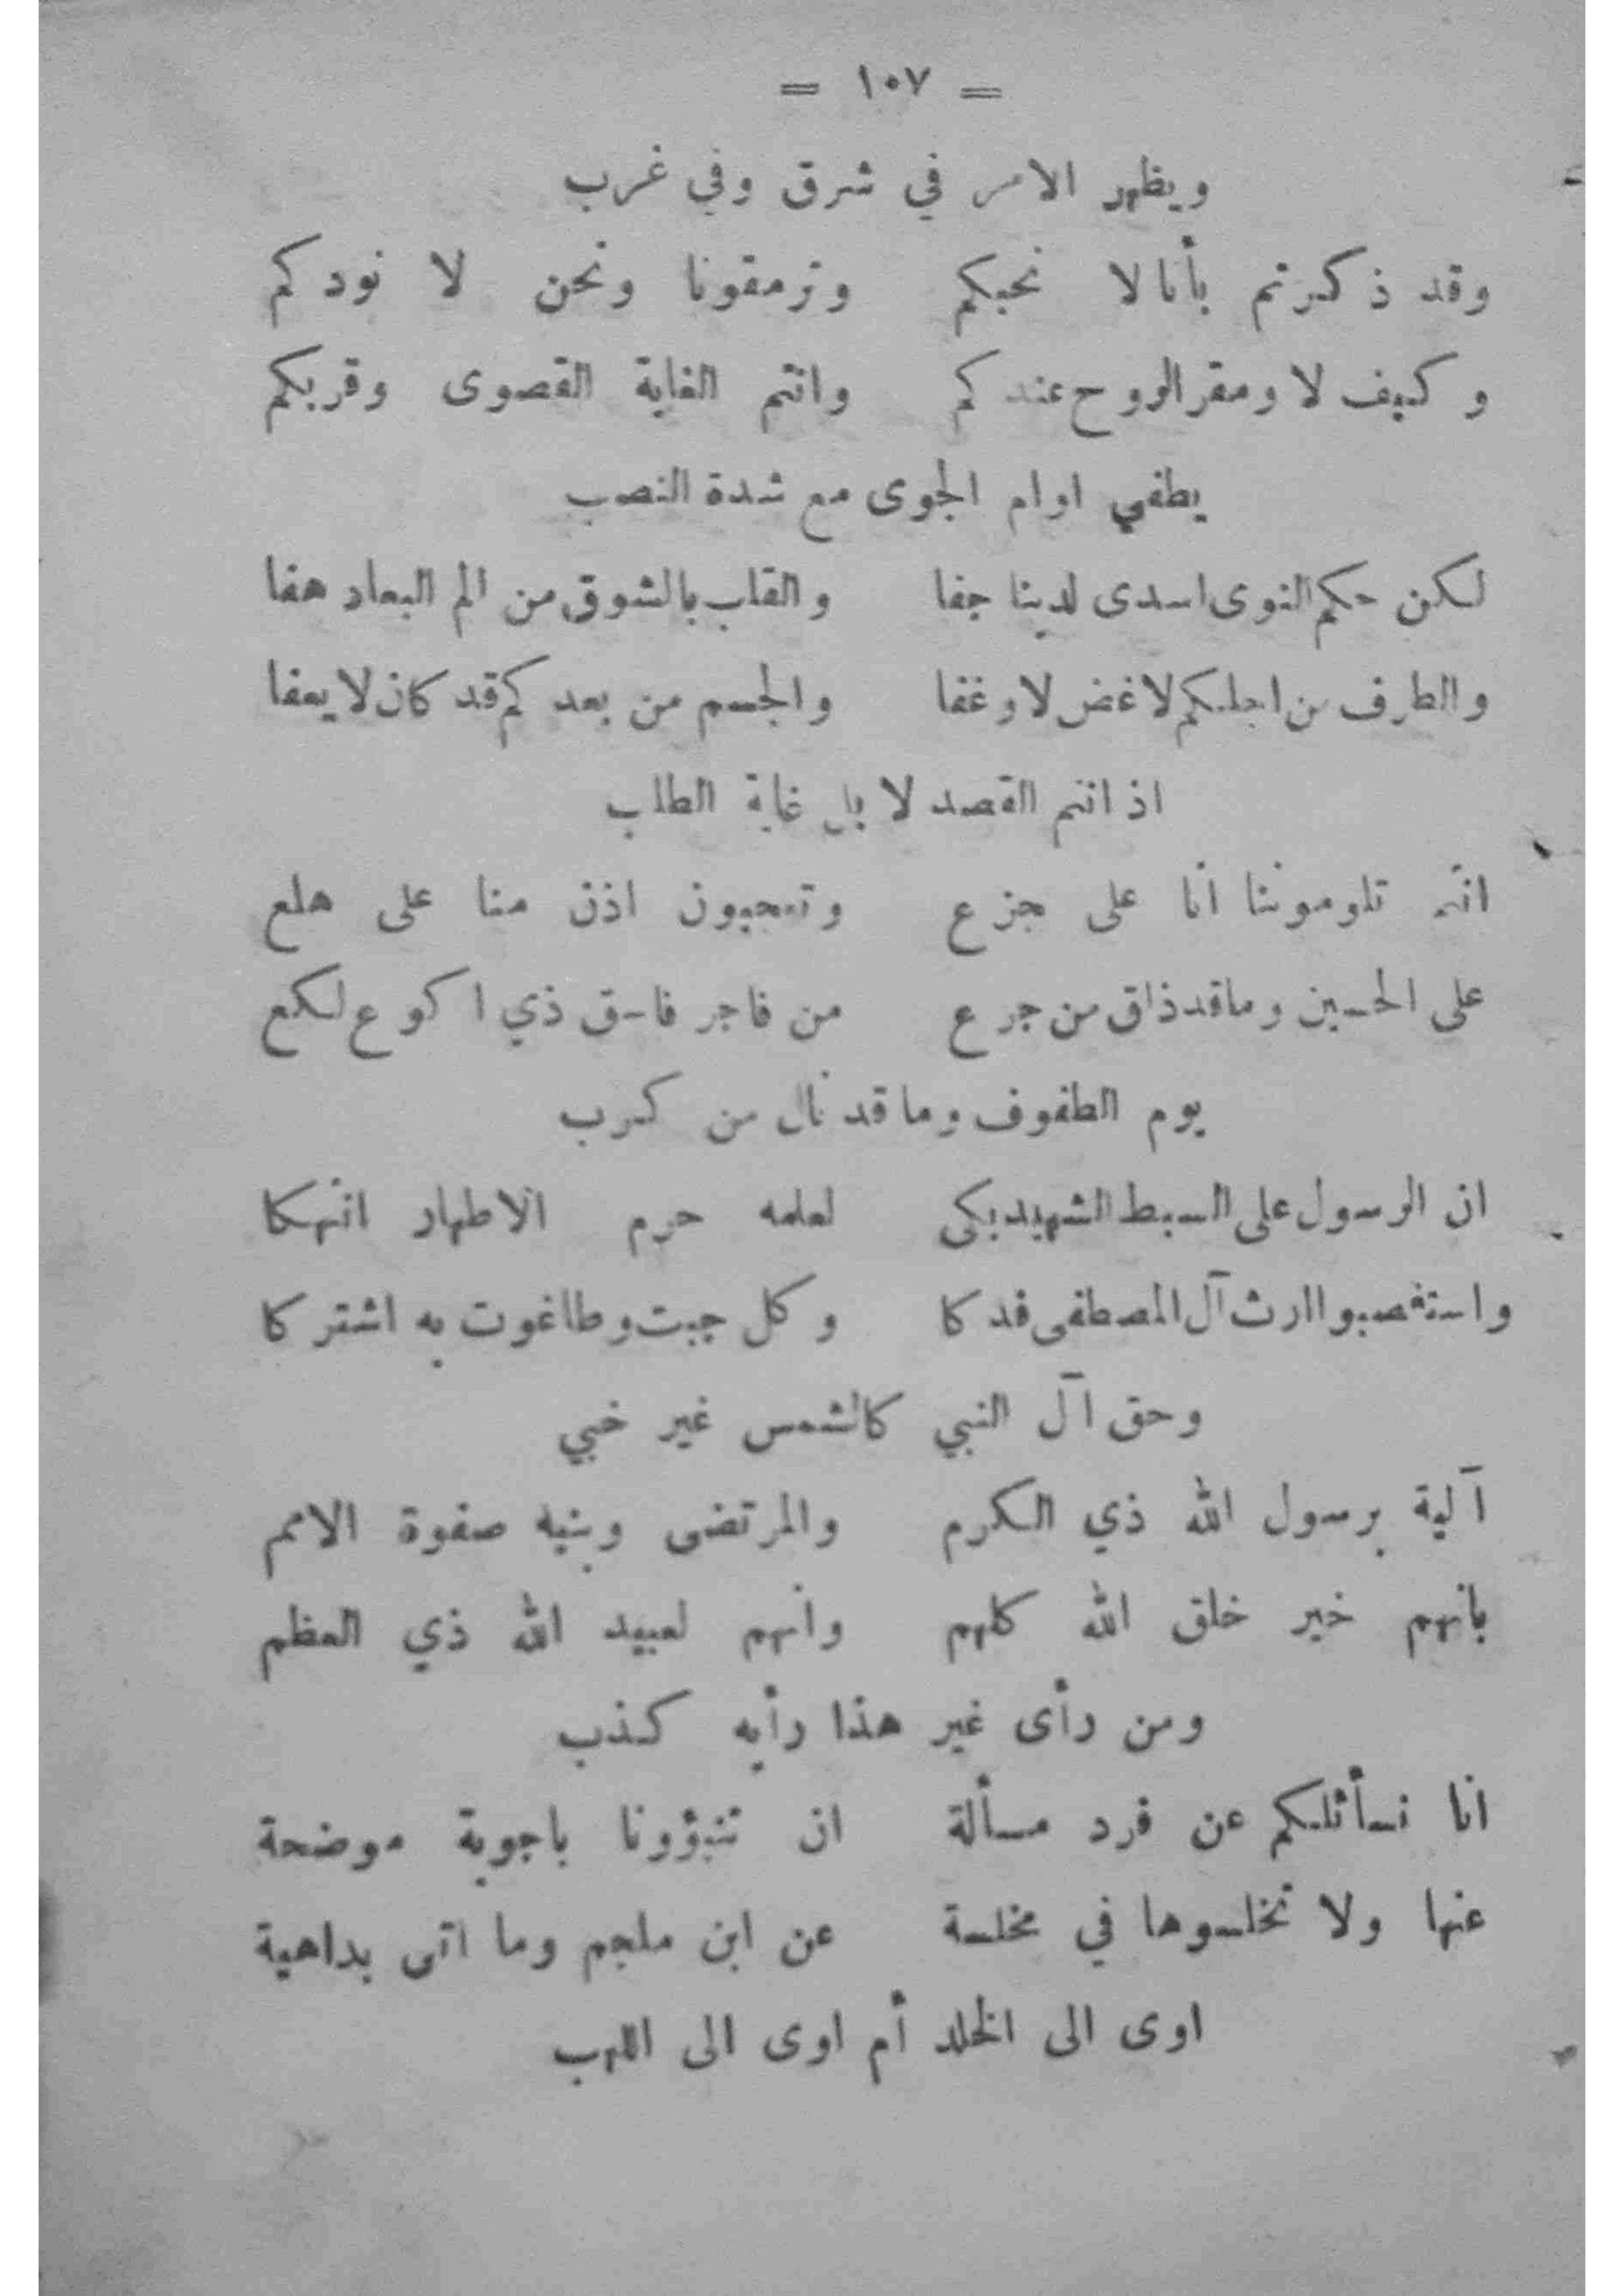 = ١٠٧ =
ويظهر الامر في شرق وفي غرب
وقد ذكرتم بأنا لا نحبكم وترمقونا ونحن لا نودكم
وكيف لا ومقر الروح عندكم وانتم الغاية القصوى وقربكم
يطفي اوام الجوى مع شدة النصب
لكن حكم النوى اسدى لدينا جفا والقلب بالشوق من الم البعاد هفا
والطرف من اجلكم لا غض لا وغفا والجسم من بعدكم قد كان لا يعفا
اذ انتم القصد لا بل غاية الطلب
انتم تلومونّنا أنا على جزع وتعجبون اذن منا على هلع
على الحسين وما قد ذاق من جرع من فاجر فاسق ذي اكوع لكع
يوم الطفوف وما قد نال من كرب
ان الرسول على السبط الشهيد بكى لعلمه حرم الاطهار انتهكا
واستغصبوا ارث آل المصطفى فدكا وكل جبت وطاغوت به اشتركا
وحق آل النبي كالشمس غير خبي
آلية برسول الله ذي الكرم والمرتضى وبنيه صفوة الامم
بانهم خير خلق الله كلهم وانهم لعبيد الله ذي العظم
ومن رأى غير هذا رأيه كذب
انا نسأئلكم عن فرد مسألة ان تنبؤونا باجوبة موضحة
عنها ولا تخلسوها في مخلسة عن ابن ملجم وما اتى بداهية
اوى الى الخلد أم اوى الى اللهب